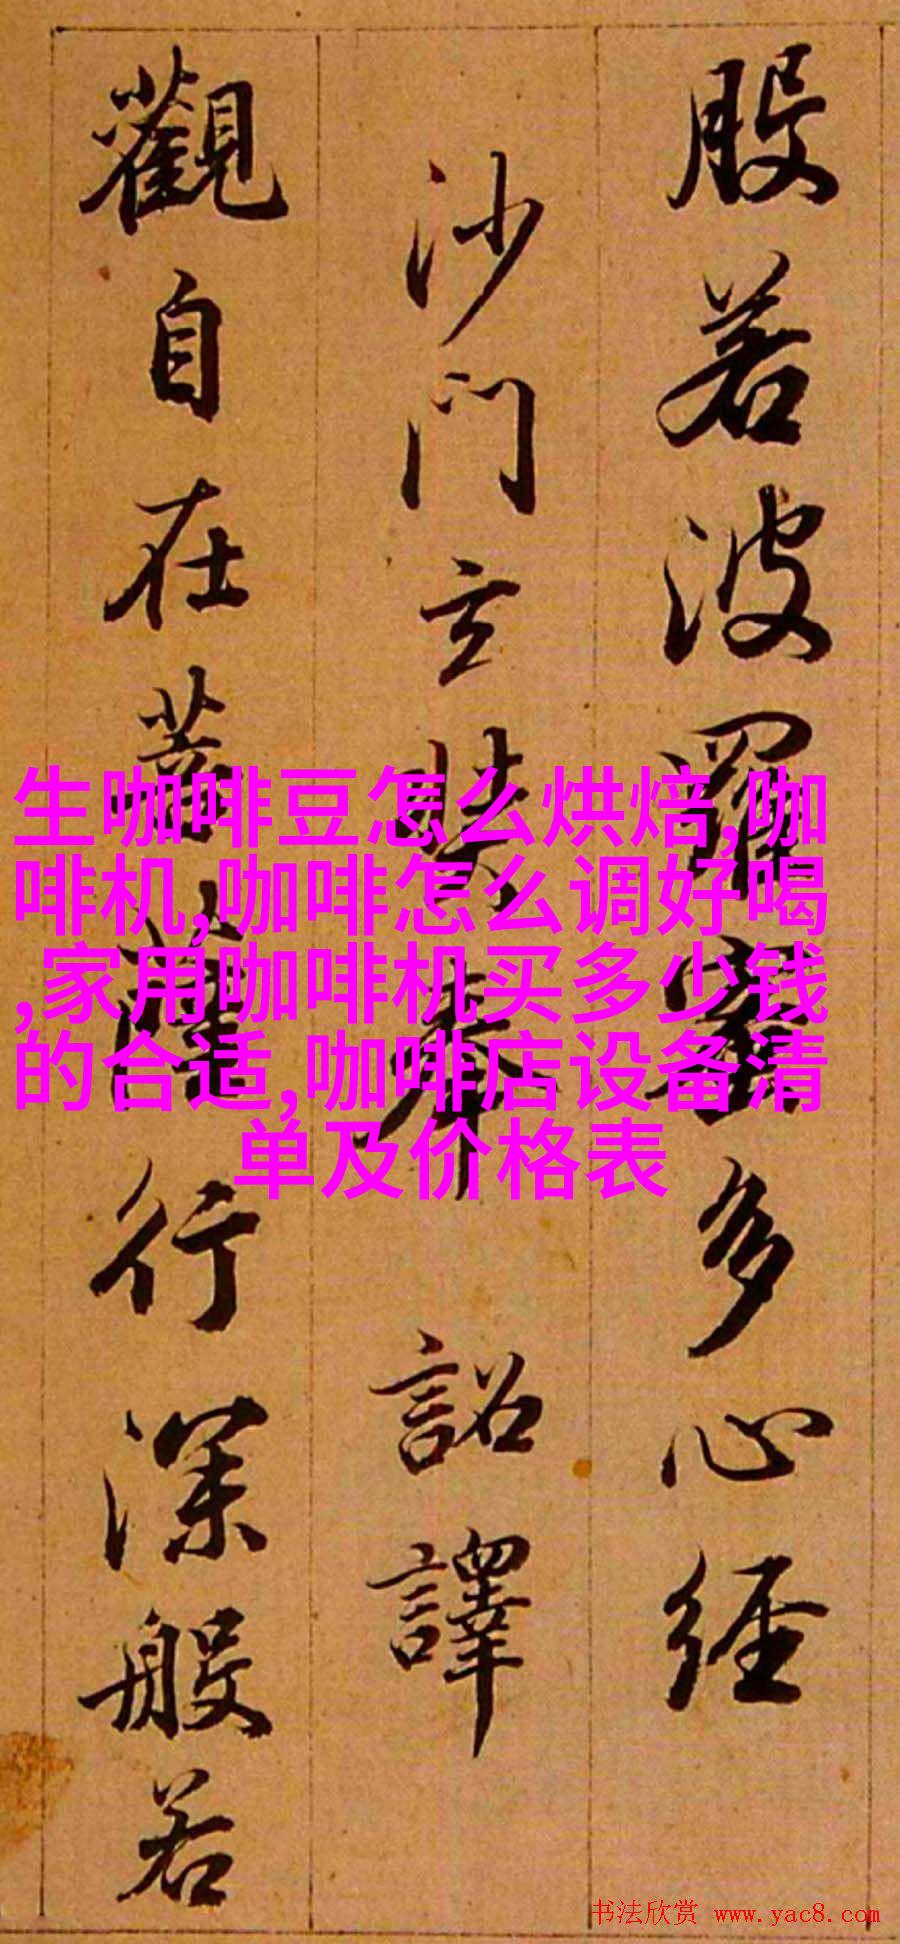 般若波羅蜜多心經
沙門玄奘奉 詔譯
觀自在菩薩行深般若
生咖啡豆怎么烘焙,咖
啡机,咖啡怎么调好喝
,家用咖啡机买多少钱
的合适,咖啡店设备清
单及价格表
书法欣赏 www.yac8.com